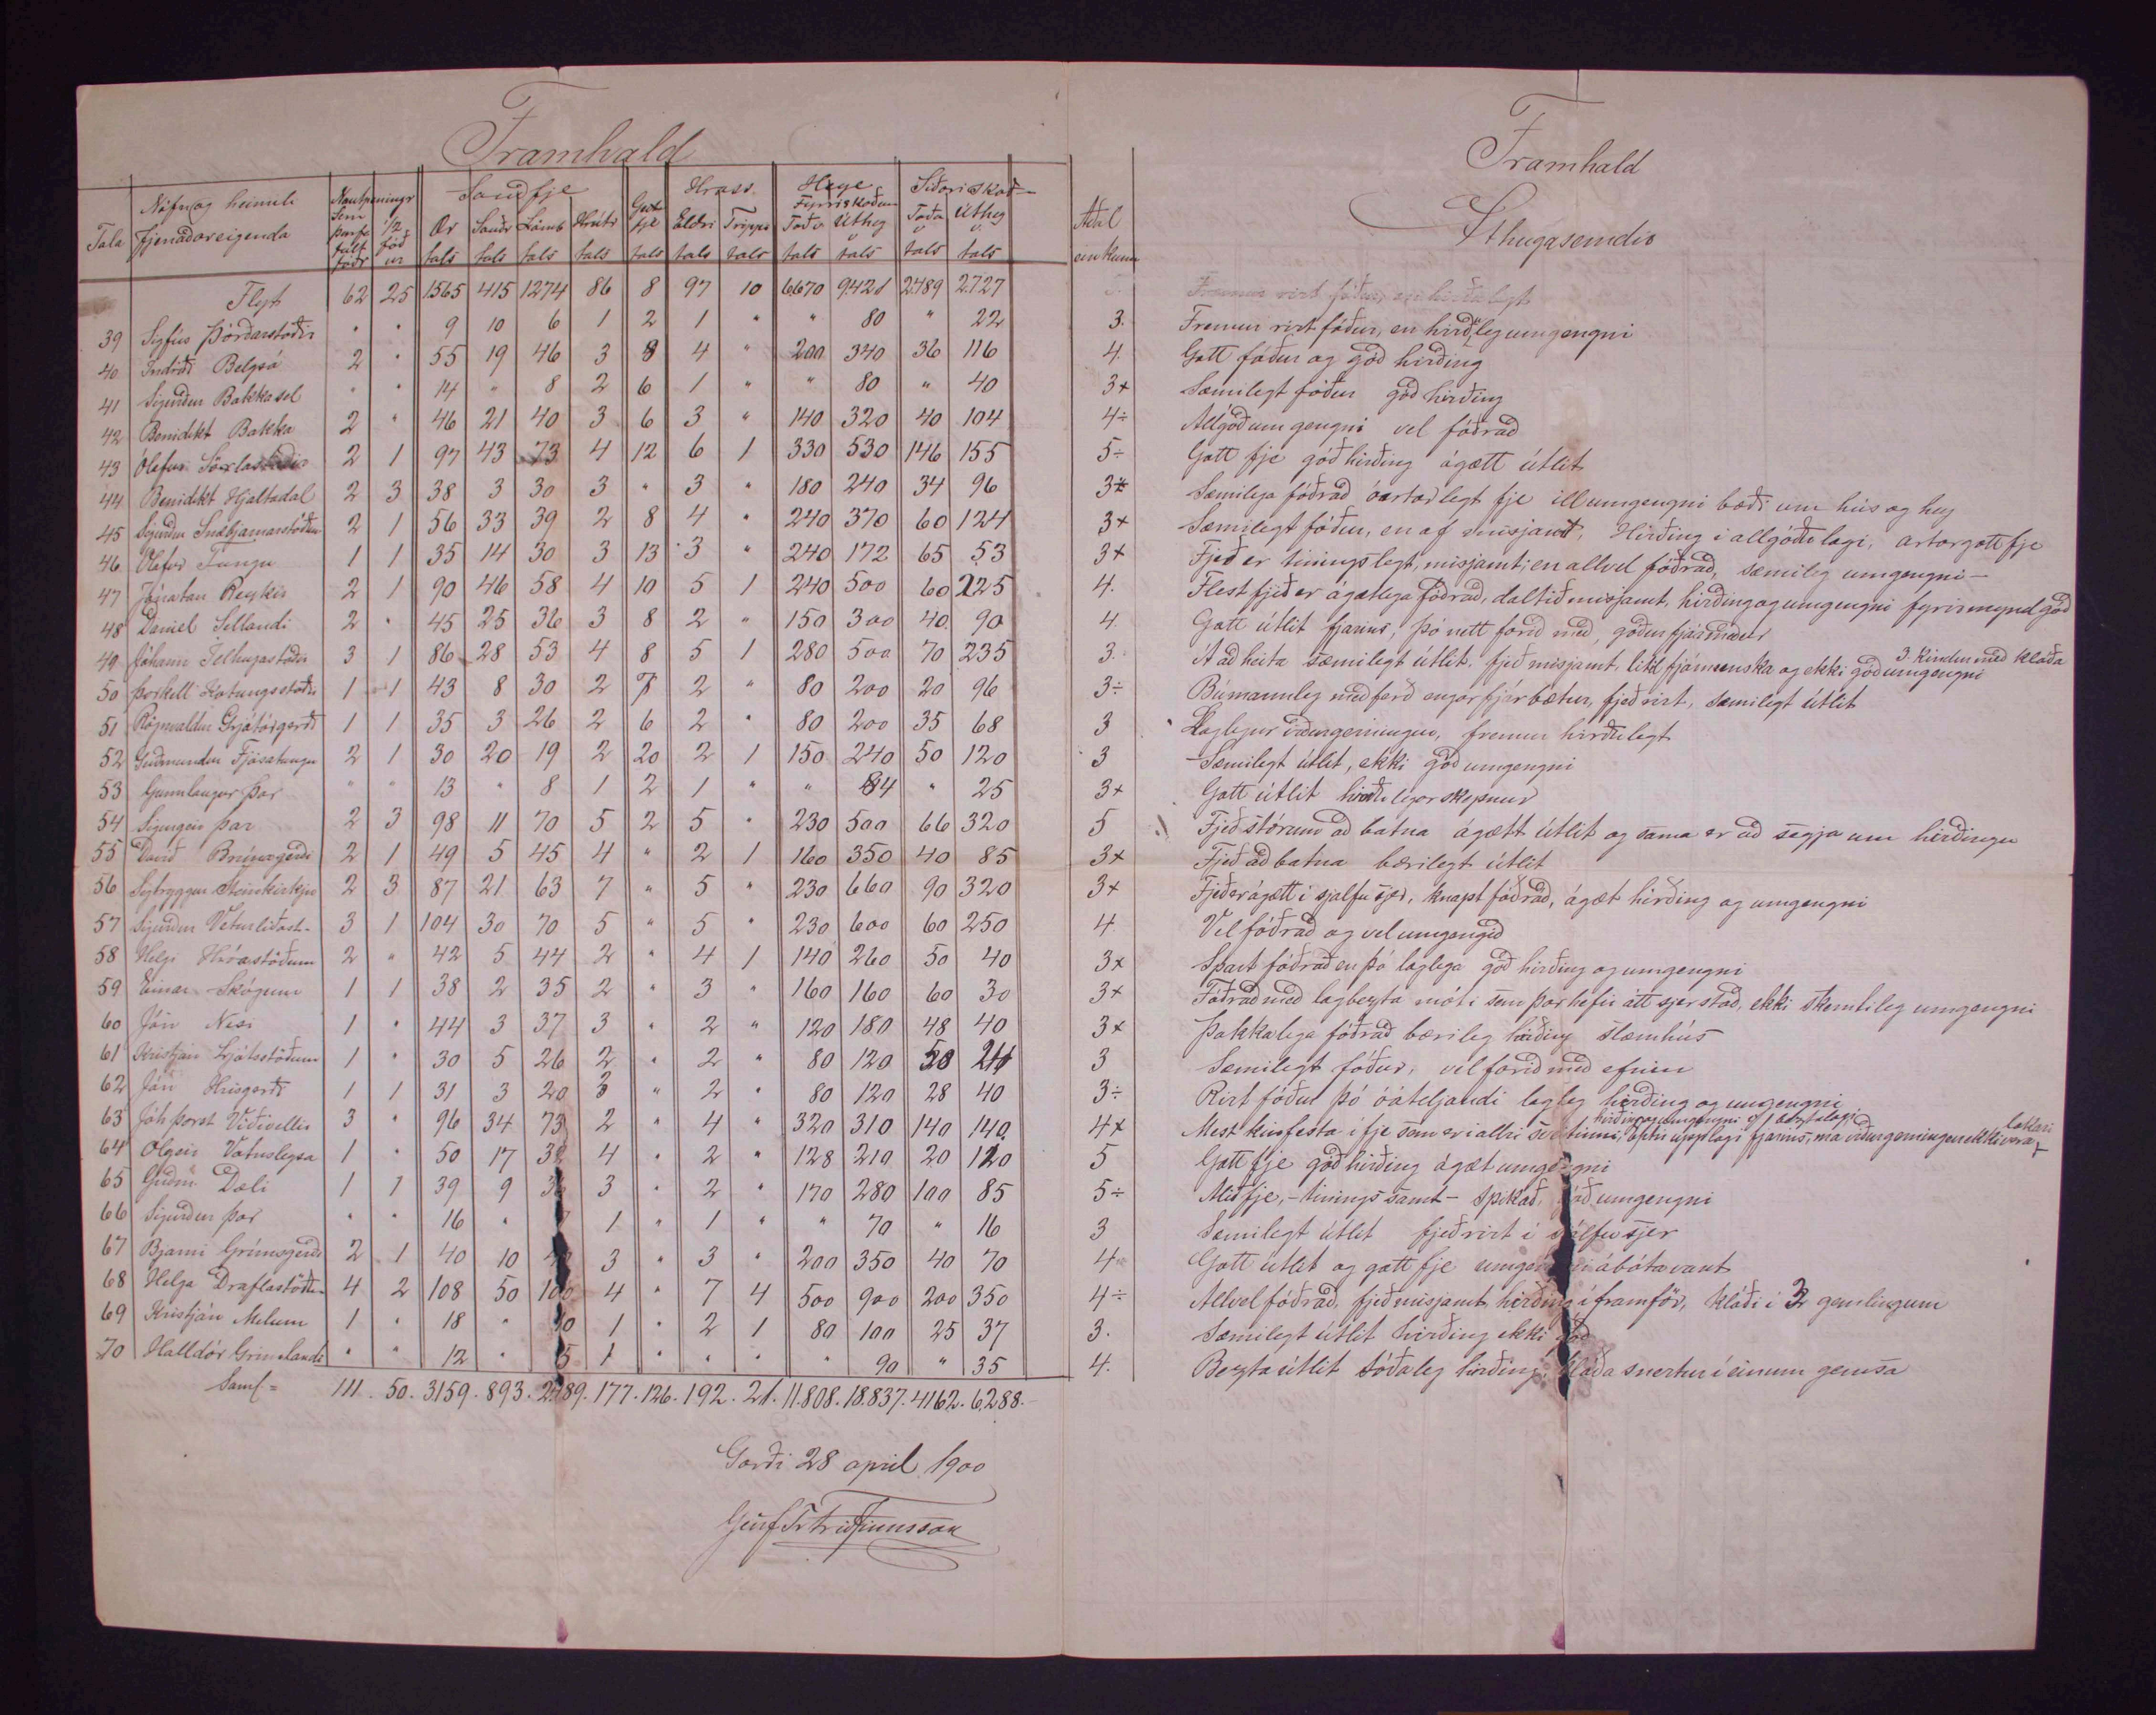 Framhald
Tala Nöfn og heimili fjenaðareigenda Nautpeningr Sem þarfa fult fóðr 1/2 fóður Sauðfje Ær tals Sauðr tals Lömb tals Hrútr tals Geitfje tals Hross Eldri tals Trippi tals Heye Fyrri skoðun Taða tals Úthey tals Síðari skoð= Taða tals Úthey tals
Flyt 62 25 1565 415 1274 86 8 97 10 6670 9421 2489 2727
39 Sigfús Þórðarstöðir " " 9 10 6 1 2 1 " " 80 " 22
40 Indriði Belgsá 2 " 55 19 46 3 8 4 " 200 340 36 116
41 Sigurður Bakkasel " " 14 " 8 2 6 1 " " 80 " 40
42 Benidikt Bakka 2 " 46 21 40 3 6 3 " 140 320 40 104
43 Ólafur Sörlastöðir 2 1 97 43 73 4 12 6 1 330 530 146 155
44 Benidikt Hjaltadal 2 3 38 3 30 3 " 3 " 180 240 34 96
45 Sigurður Snæbjarnarstöðum 2 1 56 33 39 2 8 4 " 240 370 60 124
46 Ólafur Tungu 1 1 35 14 30 3 13 3 " 240 172 65 53
47 Jónatan Reykir 2 1 90 46 58 4 10 5 1 240 500 60 225
48 Daniel Sellandi 2 " 45 25 36 3 8 2 " 150 300 40 90
49 Jóhann Illhugastöðir 3 1 86 28 53 4 8 5 1 280 500 70 235
50 Þorkell Kotungsstöðir 1 1 43 8 30 2 7 2 " 80 200 20 96
51 Rögnvaldur Grjótárgerði 1 1 35 3 26 2 6 2 " 80 200 35 68
52 Guðmundur Fjósatungu 2 1 30 20 19 2 20 2 1 150 240 50 120
53 Gunnlaugur þar " " 13 " 8 1 2 1 " " 84 " 25
54 Sigurgeir þar 2 3 98 11 70 5 2 5 " 230 500 66 320
55 Davíð Brúnagerði 2 1 49 5 45 4 " 2 1 160 350 40 85
56 Sigtryggur Steinkirkju 2 3 87 21 63 7 " 5 " 230 660 90 320
57 Sigurður Veturliðast- 3 1 104 30 70 5 " 5 " 230 600 60 250
58 Helgi Hróastöðum 2 " 42 5 44 2 " 4 1 140 260 50 40
59 Einar Skógum 1 1 38 2 35 2 " 3 " 160 160 60 30
60 Jón Nesi 1 " 44 3 37 3 " 2 " 120 180 48 40
61 Kristján Ljótsstöðum 1 " 30 5 26 2 " 2 " 80 120 50 24
62 Jón Hrisgerði 1 1 31 3 20 3 " 2 " 80 120 28 40
63 Jóh Þorst Viðivellir 3 " 96 34 73 2 " 4 " 320 310 140 140
64 Olgeir Vatnsleysa 1 " 50 17 32 4 " 2 " 128 210 20 120
65 Guðni Dæli 1 1 39 9 3 " 2 " 170 280 100 85
66 Sigurður þar " " 16 " 1 " 1 " " 70 " 16
67 Bjarni Grímsgerði 2 1 40 10 3 " 3 " 200 350 40 70
68 Helga Draflastöðum 4 2 108 50 100 4 " 7 4 500 900 200 350
69 Kristján Melum 1 " 18 " 10 1 " 2 1 80 100 25 37
70 Halldór Grimslandi " " 12 " 5 1 " " " " 90 " 35
Saml= 111. 50. 3159. 893. 2189. 177. 126. 192. 21. 11.808. 18.837. 4162. 6288.
Garði 28 april 1900
Framhald
Aðal einkunn Athugasemdir
3. Fremur rirt fóður, en hirðuleg umgengni
4. Gott fóður og góð hirðing
3+ Sæmilegt fóður góð hirðing
4÷ Allgóð umgengni vel fóðrað
5÷ Gott fje góð hirðing ágætt útlit
3+ Sæmilega fóðrað óartarlegt fje ill umgengni bæði um hús og hey
3+ Sæmilegt fóður, en af misjamt, Hirðing i allgóðu lagi, artargott fje
3+ Fjeð er tiningslegt, misjamt, en allvel fóðrað, sæmileg umgengni—
4. Flest fjeð er ágætlega fóðrað, dalitið misjamt, hirðing og umgengni fyrirmynd góð
4. Gott útlit fjarins, þó nett farið með, góður fjármaður
3. Á að heita sæmilegt útlit. fjeð misjamt. litil fjármenska og ekki góð umgengni 3 kindur með kláða
3÷ Búmannleg meðferð engar fjárbætur, fjeð rirt, sæmilegt útlit
3 Laglegur viðurgerningur, fremur hirðulegt
3 Sæmilegt útlit, ekki góð umgengni
3+ Gott útlit hirðulegar skepnur
5 Fjeð stórum að batna ágætt útlit og sama er að segja um hirðingu
3+ Fjeð að batna bærilegt útlit
3+ Fjeð er ágætt i sjalfu sjer, knapt fóðrað, ágæt hirðing og umgengni
4. Vel fóðrað og vel umgengið
3+ Spart fóðrað en þó laglega góð hirðing og umgengni
3+ Fóðrað með lagbezta móti sem þar hefir átt sjer stað, ekki skemtileg umgengni
3+ Þakkalega fóðrað bærileg hirðing slæm hús
3 Sæmilegt fóður, vel farið með efnin
3÷ Rirt fóður þó óáteljandi lagleg hirðing og umgengni
4+ Mest kinfesta i fje sem er i allri sveitinni, hirðing og umgengni i bezta lagi eptir upplagi fjarins, má viðurgerningur ekki vera lakari
5 Gott fje góð hirðing ágæt umgengni
5÷ Mið fje, - tinings samt - spikað, góð umgengni
3 Sæmilegt útlit fjeð rirt i sjálfu sjer
4 Gott útlit og gott fje umgengni ábótavant
4÷ Allvel fóðrað, fjeð misjamt, hirðing i framför, kláði i 2 gemlingum
3. Sæmilegt útlit hirðing ekki góð
4. Bezta útlit sóðaleg hirðing, kláða snertur i einum gemsa